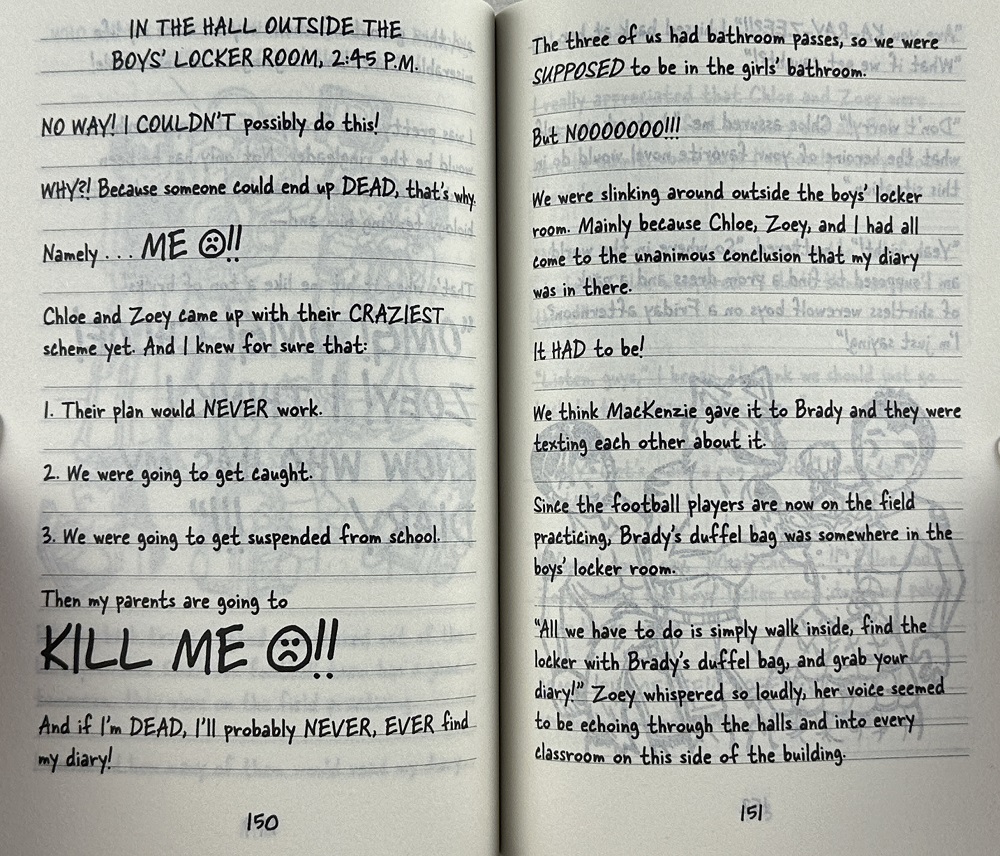 IN THE HALL OUTSIDE THE
BOYS' LOCKER ROOM, 2:45 P.M.
NO WAY! I COULDN'T possibly do this!
WHY?! Because someone could end up DEAD, that's why.
Namely . . . ME ☹!!
Chloe and Zoey came up with their CRAZIEST
scheme yet. And I knew for sure that:
1. Their plan would NEVER work.
2. We were going to get caught.
3. We were going to get suspended from school.
Then my parents are going to
KILL ME ☹!!
And if I'm DEAD, I'll probably NEVER, EVER find
my diary!
150
The three of us had bathroom passes, so we were
SUPPOSED to be in the girls' bathroom.
But NOOOOOOO!!!
We were slinking around outside the boys' locker
room. Mainly because Chloe, Zoey, and I had all
come to the unanimous conclusion that my diary
was in there.
It HAD to be!
We think MacKenzie gave it to Brady and they were
texting each other about it.
Since the football players are now on the field
practicing, Brady's duffel bag was somewhere in the
boys' locker room.
"All we have to do is simply walk inside, find the
locker with Brady's duffel bag, and grab your
diary!" Zoey whispered so loudly, her voice seemed
to be echoing through the halls and into every
classroom on this side of the building.
151